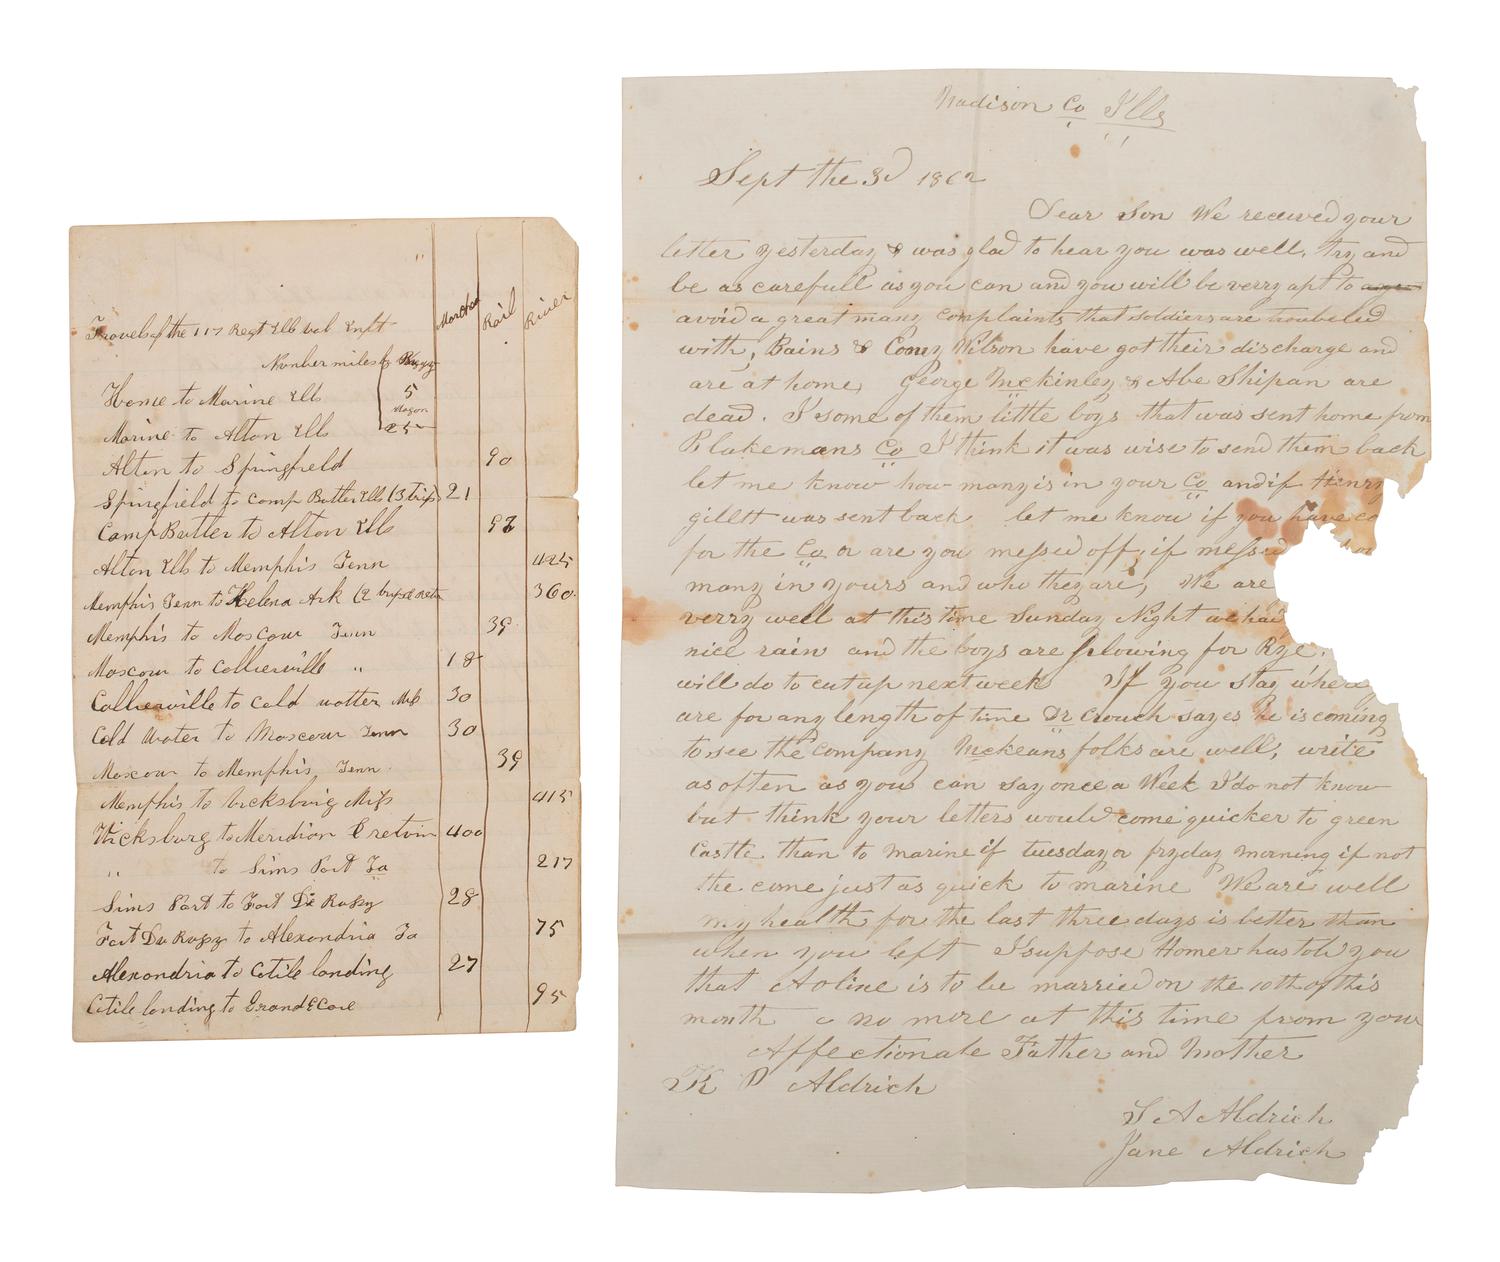 Travels of the 117 Regt Ills vol Inft
Marched
Rail
River
Number miles by Buggy
Home to Marine Ills 5
Wagon
Marine to Alton Ills 25
Alton to Springfield 90
Springfield to Camp Butler Ills (3 trips) 21
Camp Butler to Alton Ills
Alton Ills to Memphis Tenn 425
Memphis Tenn to Helena Ark (2 trips 360
Memphis to Moscow Tenn 39
Moscow to Collierville " 18
Collierville to Cold watter Mis 30
Cold Water to Moscow Tenn 30
Moscow to Memphis Tenn 39
Memphis to Vicksburg Miss 415
Vicksburg to Meridian & retirn 400
" to Sims Port La 217
Sims Port to Fort De Russy 28
Fort De Russy to Alexandria La 75
Alexandria to Cotile landing 27
Cotile landing to Grand ECore 95
Madison Co Ills
Sept the 3d 1862
Dear Son We received your
letter yesterday & was glad to hear you was well, try and
be as carefull as you can and you will be verry apt to
avoid a great many complaints that soldiers are troubeled
with, Bains & Comy Wilson have got their discharge and
are at home, George Mckinley & Abe Shipan are
dead. I some of them little boys that was sent home from
Blakemans Co I think it was wise to send them back
let me know how many is in your Co and if Henry
gillett was sent back let me know if you have co
for the Co or are you messed off, if messed how
many in yours and who they are, We are
verry well at this time Sunday Night we had
nice rain and the boys are plowing for Rye.
will do to cut up next week If you stay where
are for any length of time Dr Crouch sayes he is coming
to see the company Mckeans folks are well, write
as often as you can say once a Week I do not know
but think your letters would come quicker to green
Castle than to marine if tuesday or fryday morning if not
the come just as quick to marine We are well
my health for the last three days is better than
when you left I suppose Homer has told you
that Aoline is to be married on the 10th of this
month no more at this time from your
Affectionate Father and Mother
K P Aldrich
S A Aldrich
Jane Aldrich